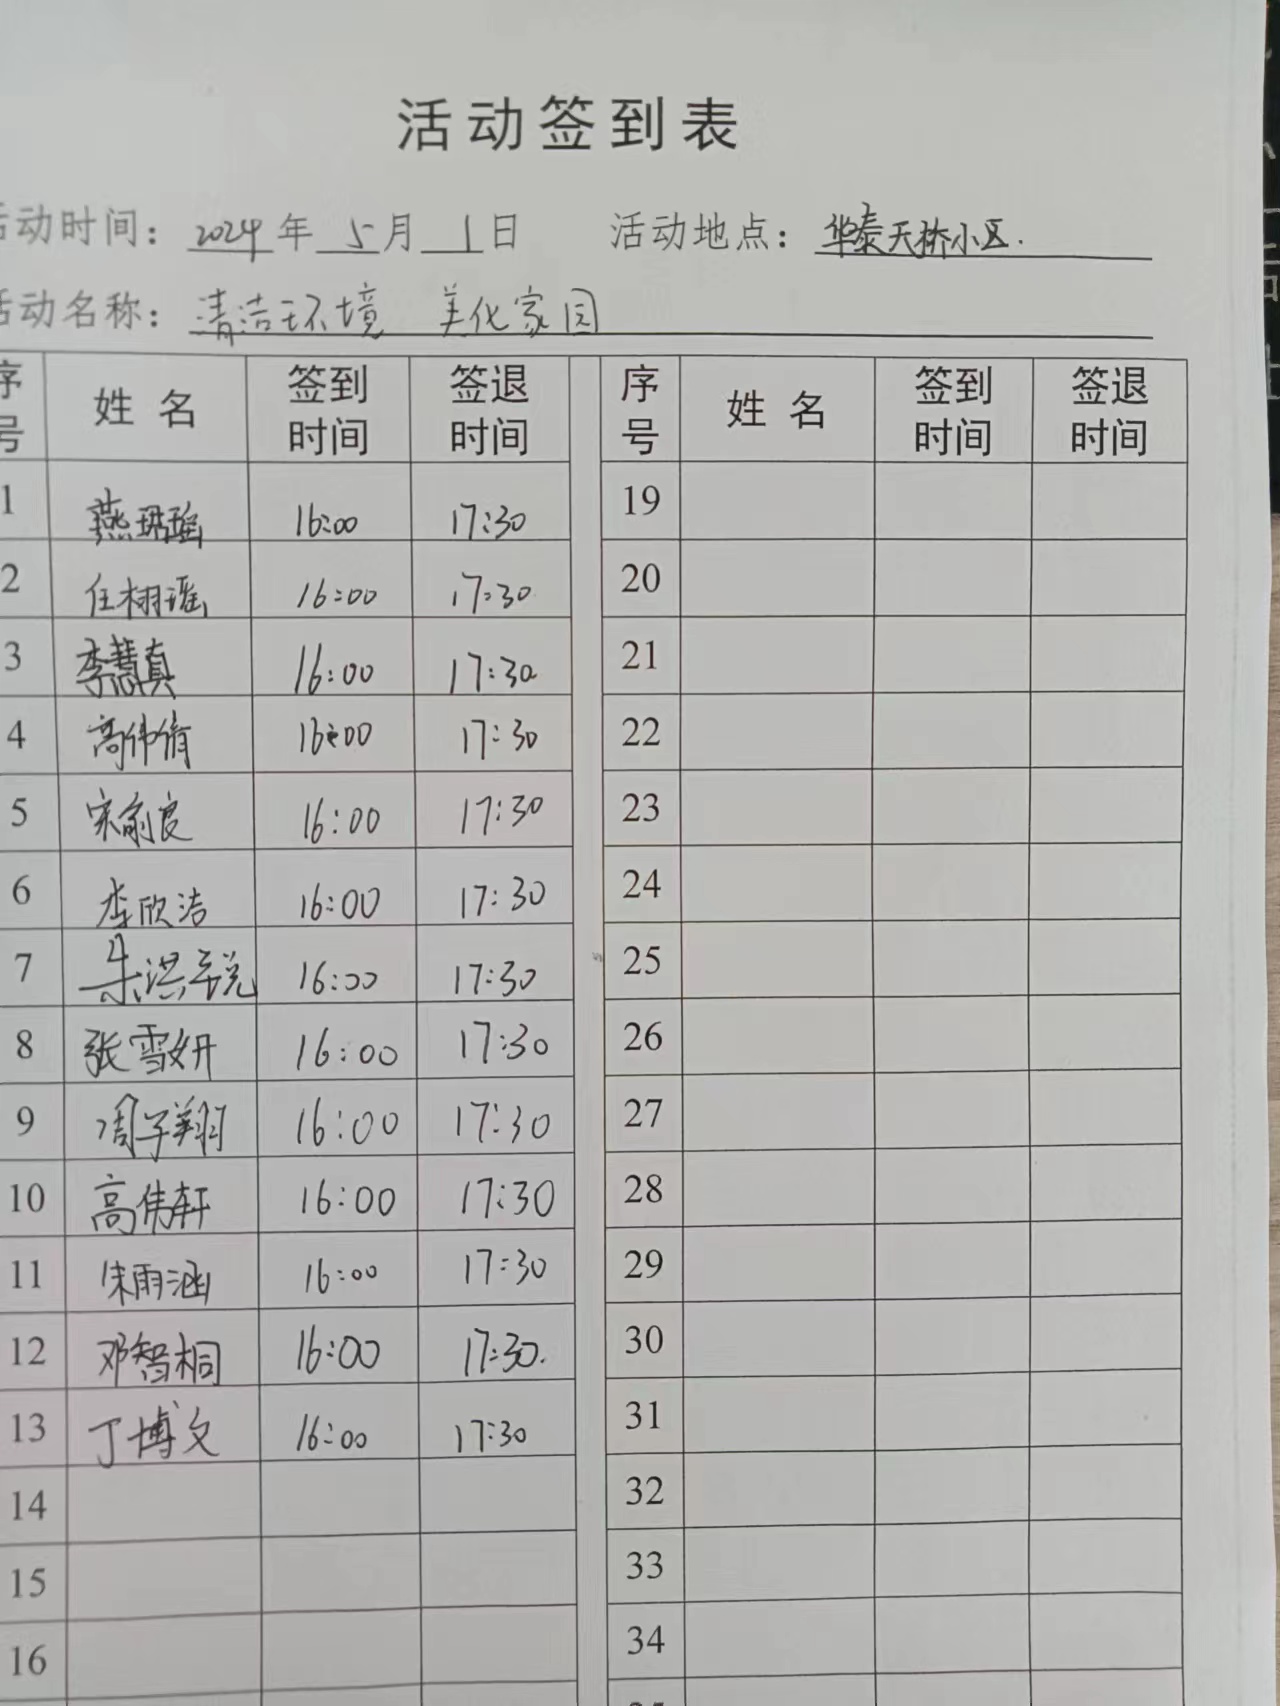 活动签到表
活动时间：2024年5月1日 活动地点：华泰天桥小区.
活动名称：清洁环境 美化家园
序号 姓名 签到时间 签退时间 序号 姓名 签到时间 签退时间
1 燕琚瑶 16:00 17:30 19
2 任栩瑶 16:00 17:30 20
3 李慧真 16:00 17:30 21
4 高伟倩 16:00 17:30 22
5 宋俞良 16:00 17:30 23
6 李欣洁 16:00 17:30 24
7 朱洪 16:00 17:30 25
8 张雪妍 16:00 17:30 26
9 周子翔 16:00 17:30 27
10 高伟轩 16:00 17:30 28
11 朱雨涵 16:00 17:30 29
12 邓智桐 16:00 17:30. 30
13 丁博文 16:00 17:30 31
14 32
15 33
16 34